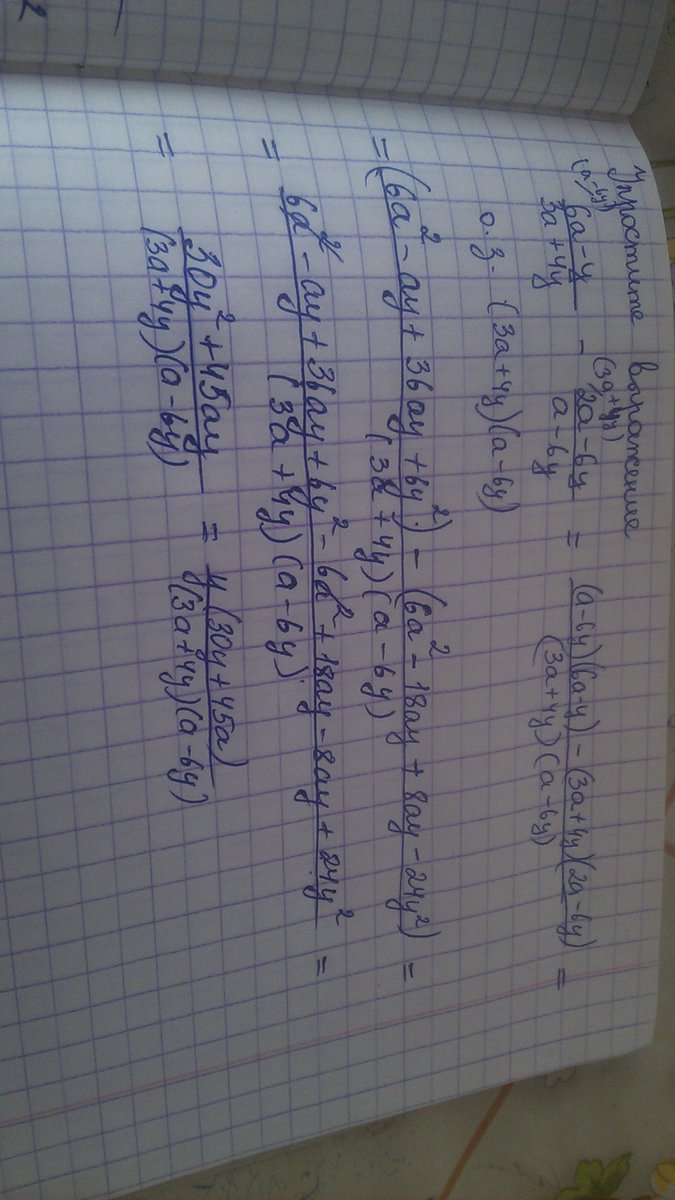 Упростите выражение
(a-6y) (3a+4y)
6a-y/3a+4y - 2a-6y/a-6y = (a-6y)(6a-y) - (3a+4y)(2a-6y)/(3a+4y)(a-6y) =
о.з. (3a+4y)(a-6y)
= (6a² - ay + 36ay + 6y²) - (6a² - 18ay + 8ay - 24y²)/(3a+4y)(a-6y) =
= 6a² - ay + 36ay + 6y² - 6a² + 18ay - 8ay + 24y²/(3a+4y)(a-6y) =
= 30y² + 45ay/(3a+4y)(a-6y) = y(30y+45a)/(3a+4y)(a-6y)
2